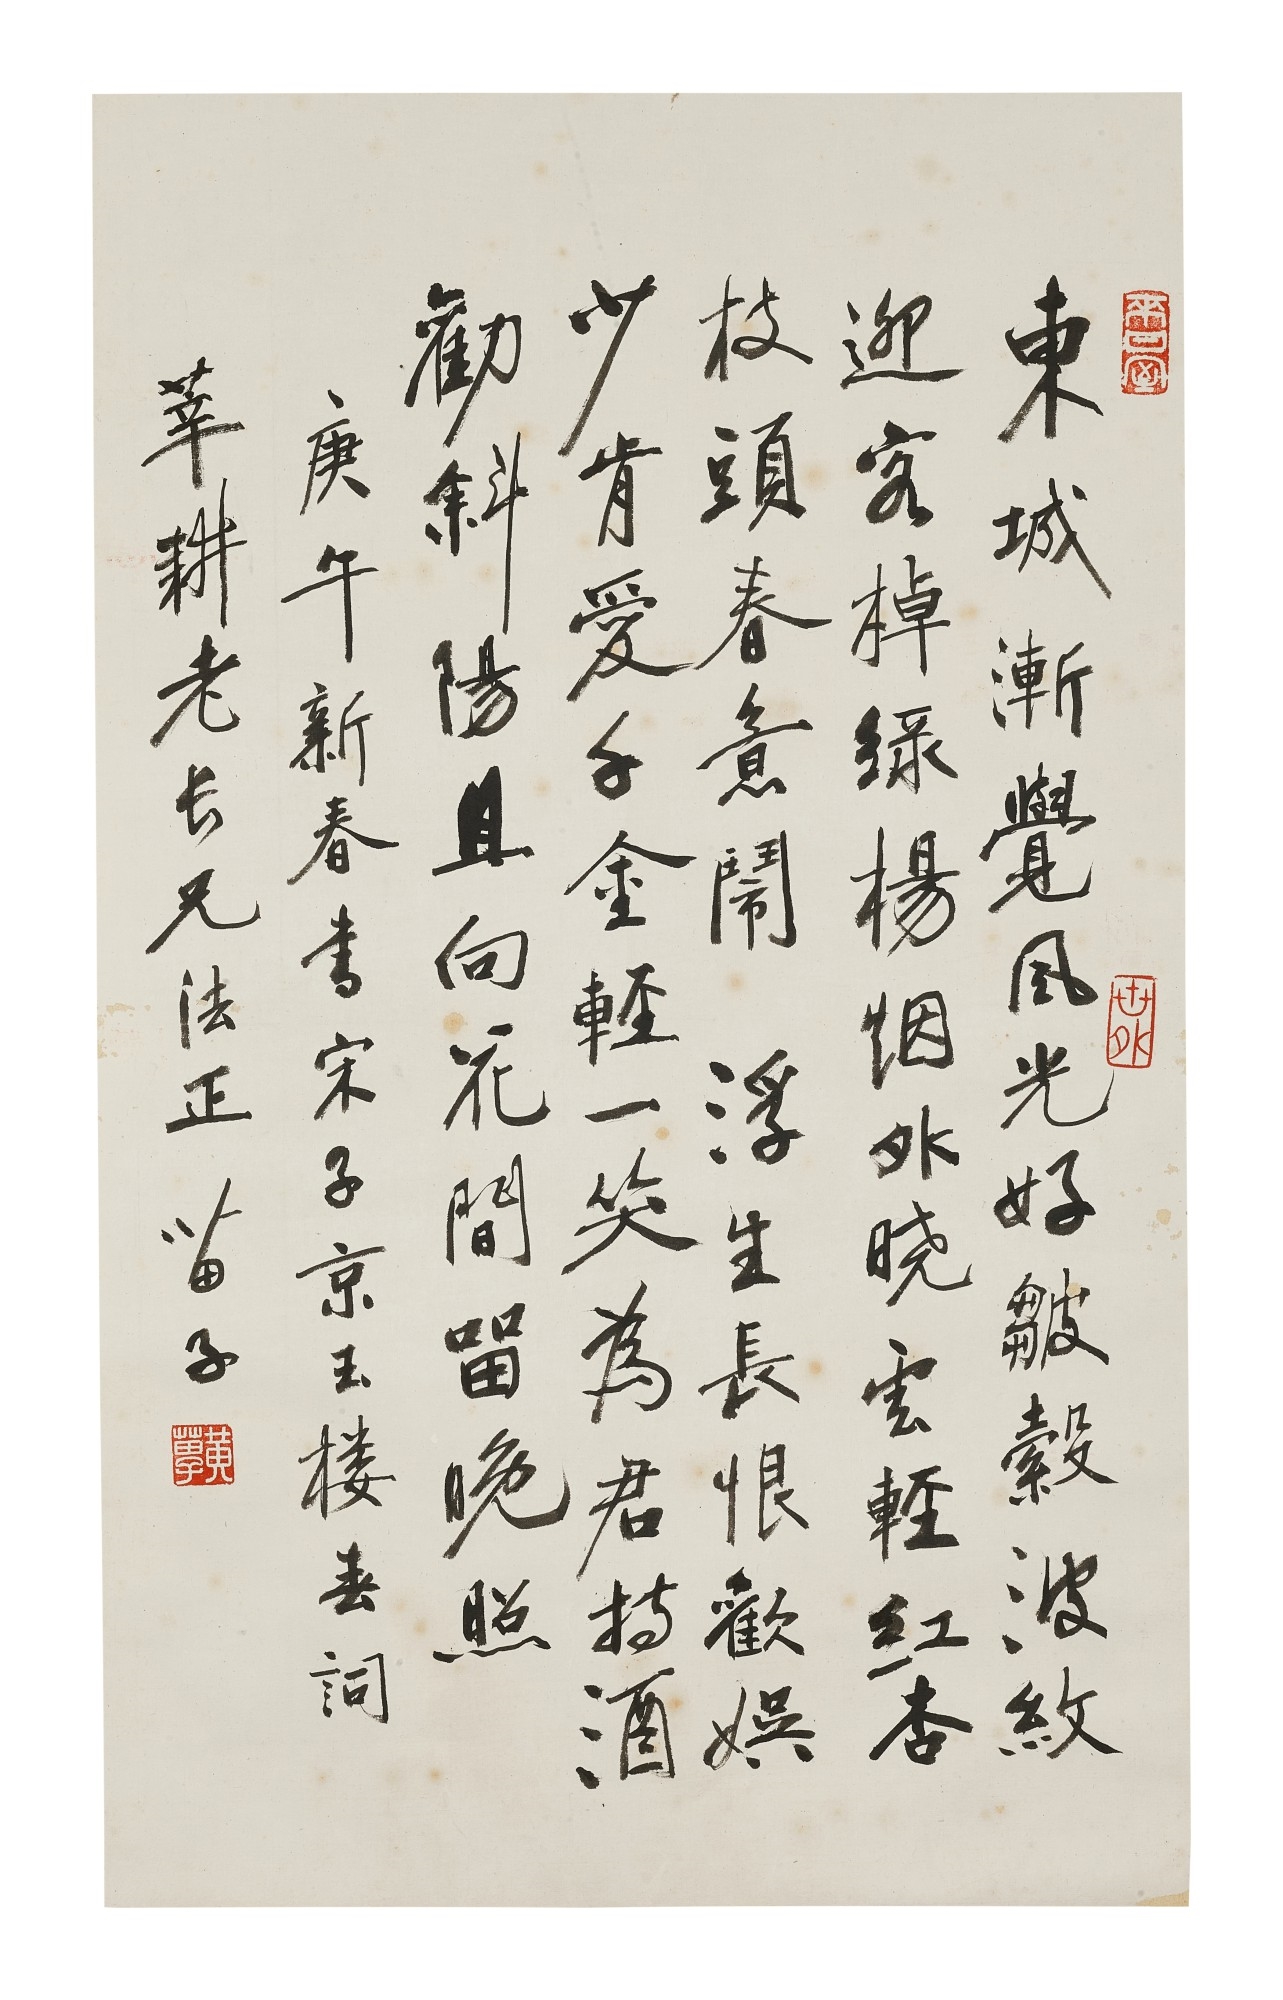 東城漸覺風光好皺縠波紋
迎客棹綠楊烟外晓雲輕紅杏
枝頭春意鬧 浮生長恨歡娛
少肯愛千金輕一笑為君持酒
勸斜陽且向花間留晚照
庚午新春书宋子京玉楼春詞
莘耕老长兄法正 苗子
世外
黄苗子